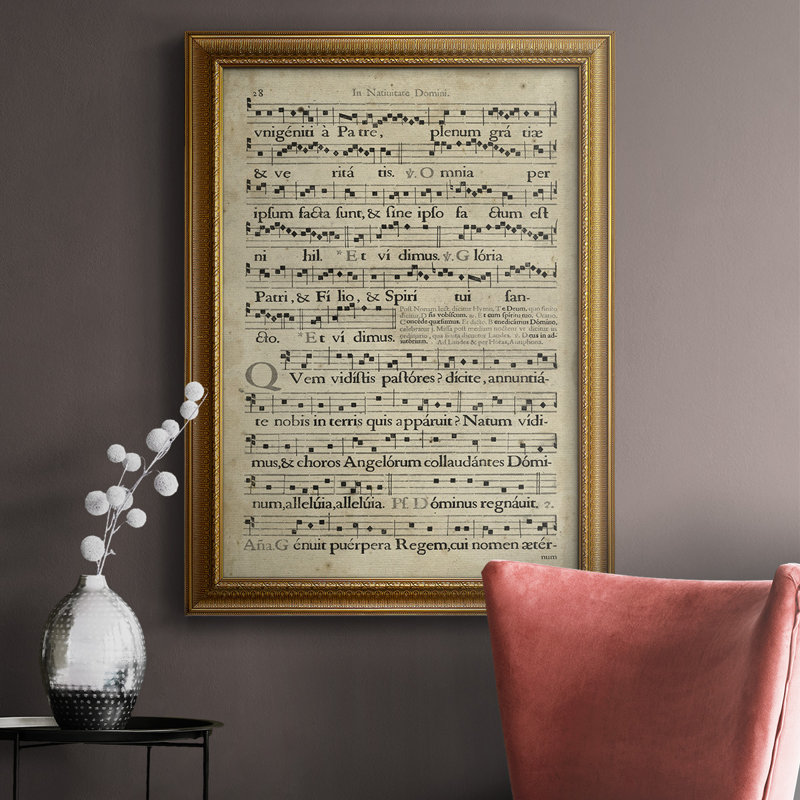 28 In Natiuitate Domini.
vnigéniti à Pa tre, plenum grá tiæ
& ve ritá tis. ℣. O mnia per
ipſum facta ſunt, & ſine ipſo fa ctum eſt
ni hil. *Et ví dimus. ℣. Glória
Patri, & Fí lio, & Spirí tui ſan-
Poſt Nonum lect. dicitur Hymn. Te Deum. quo finito
dicitur, Dñs vobiſcum. ℟. Et cum ſpiritu tuo. Oratio.
Concéde quæſumus. Et dicto Benedicámus Dómino,
celebratur j. Miſſa poſt medium noctem
Laudes. ℣. Deus in ad-
iutórium. Ad Laudes & per Horas, Antiphona.
cto. *Et ví dimus.
QVem vidíſtis paſtóres? dícite, annuntiá-
te nobis in terris quis appáruit? Natum vídi-
mus, & choros Angelórum collaudántes Dómi-
num, allelúia, allelúia. Pſ. Dóminus regnáuit. 2.
Aña. Génuit puérpera Regem, cui nomen ætér-
num